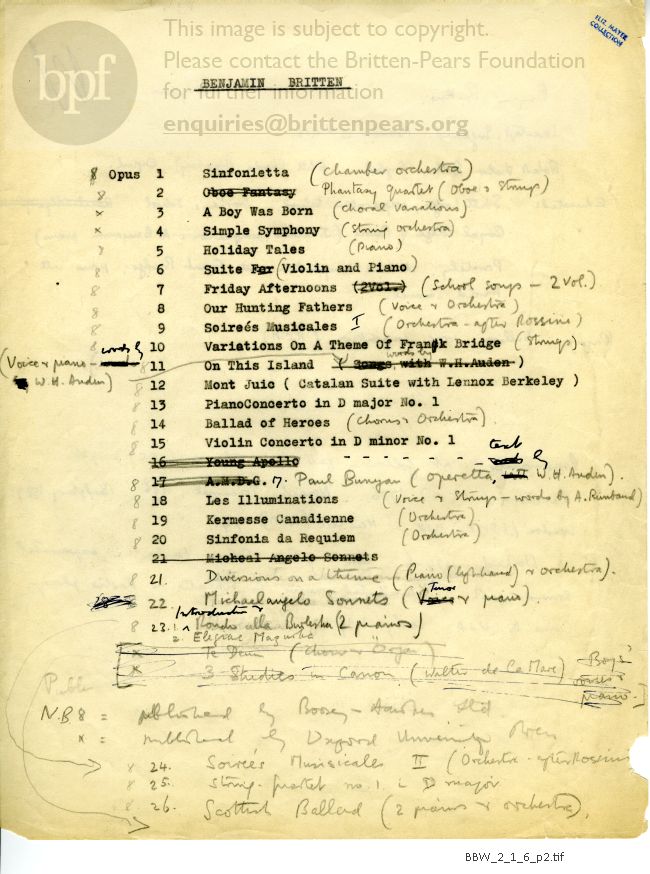 This image is subject to copyright.
Please contact the Britten-Pears Foundation
for further information
enquiries@brittenpears.org
bpf
ELIZ. MAYER
COLLECTION
BENJAMIN BRITTEN
8 Opus 1 Sinfonietta (Chamber orchestra)
8 2 Oboe Fantasy Phantasy Quartet (Oboe & Strings)
x 3 A Boy Was Born (Choral variations)
x 4 Simple Symphony (String orchestra)
8 5 Holiday Tales (Piano)
8 6 Suite For (Violin and Piano)
8 7 Friday Afternoons (2Vol.) (School songs - 2 Vol.)
8 8 Our Hunting Fathers (Voice & Orchestra)
8 9 Soireés Musicales I (Orchestra - after Rossini)
8 10 Variations On A Theme Of Frank Bridge (Strings)
(Voice & piano - words by W.H. Auden)
11 On This Island (Songs, with W.H.Auden)
words by
8 12 Mont Juic ( Catalan Suite with Lennox Berkeley )
8 13 PianoConcerto in D major No. 1
8 14 Ballad of Heroes (Chorus & Orchestra)
8 15 Violin Concerto in D minor No. 1
16 Young Apollo
8 17 A.M.D.G. 17. Paul Bunyan (operetta, text by W.H. Auden).
8 18 Les Illuminations (Voice & Strings - words by A. Rimbaud)
8 19 Kermesse Canadienne (Orchestra)
8 20 Sinfonia da Requiem (Orchestra)
21 Micheal Angelo Sonnets
8 21. Diversions on a theme (Piano (left hand) & orchestra).
22. Michaelangelo Sonnets (Voice Tenor & piano).
8 23. 1. Introduction & Rondo alla Burleska (2 pianos)
2. Elegiac Mazurka
x Te Deum (Chorus & Organ)
x 3 Studies in Canon (Walter de la Mare) Boys' voices & piano.
N.B 8 = published by Boosey-Hawkes Ltd
x = published by Oxford University Press
8 24. Soireés Musicales II (Orchestra - after Rossini)
8 25. String quartet no. 1 in D major
8 26. Scottish Ballad (2 pianos & orchestra).
BBW_2_1_6_p2.tif